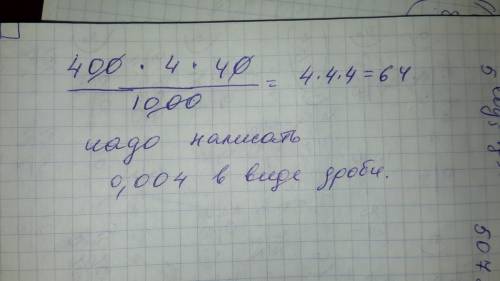 400 · 4 · 40 / 1000 = 4·4·4 = 64
надо написать
0,004 в виде дроби.
507